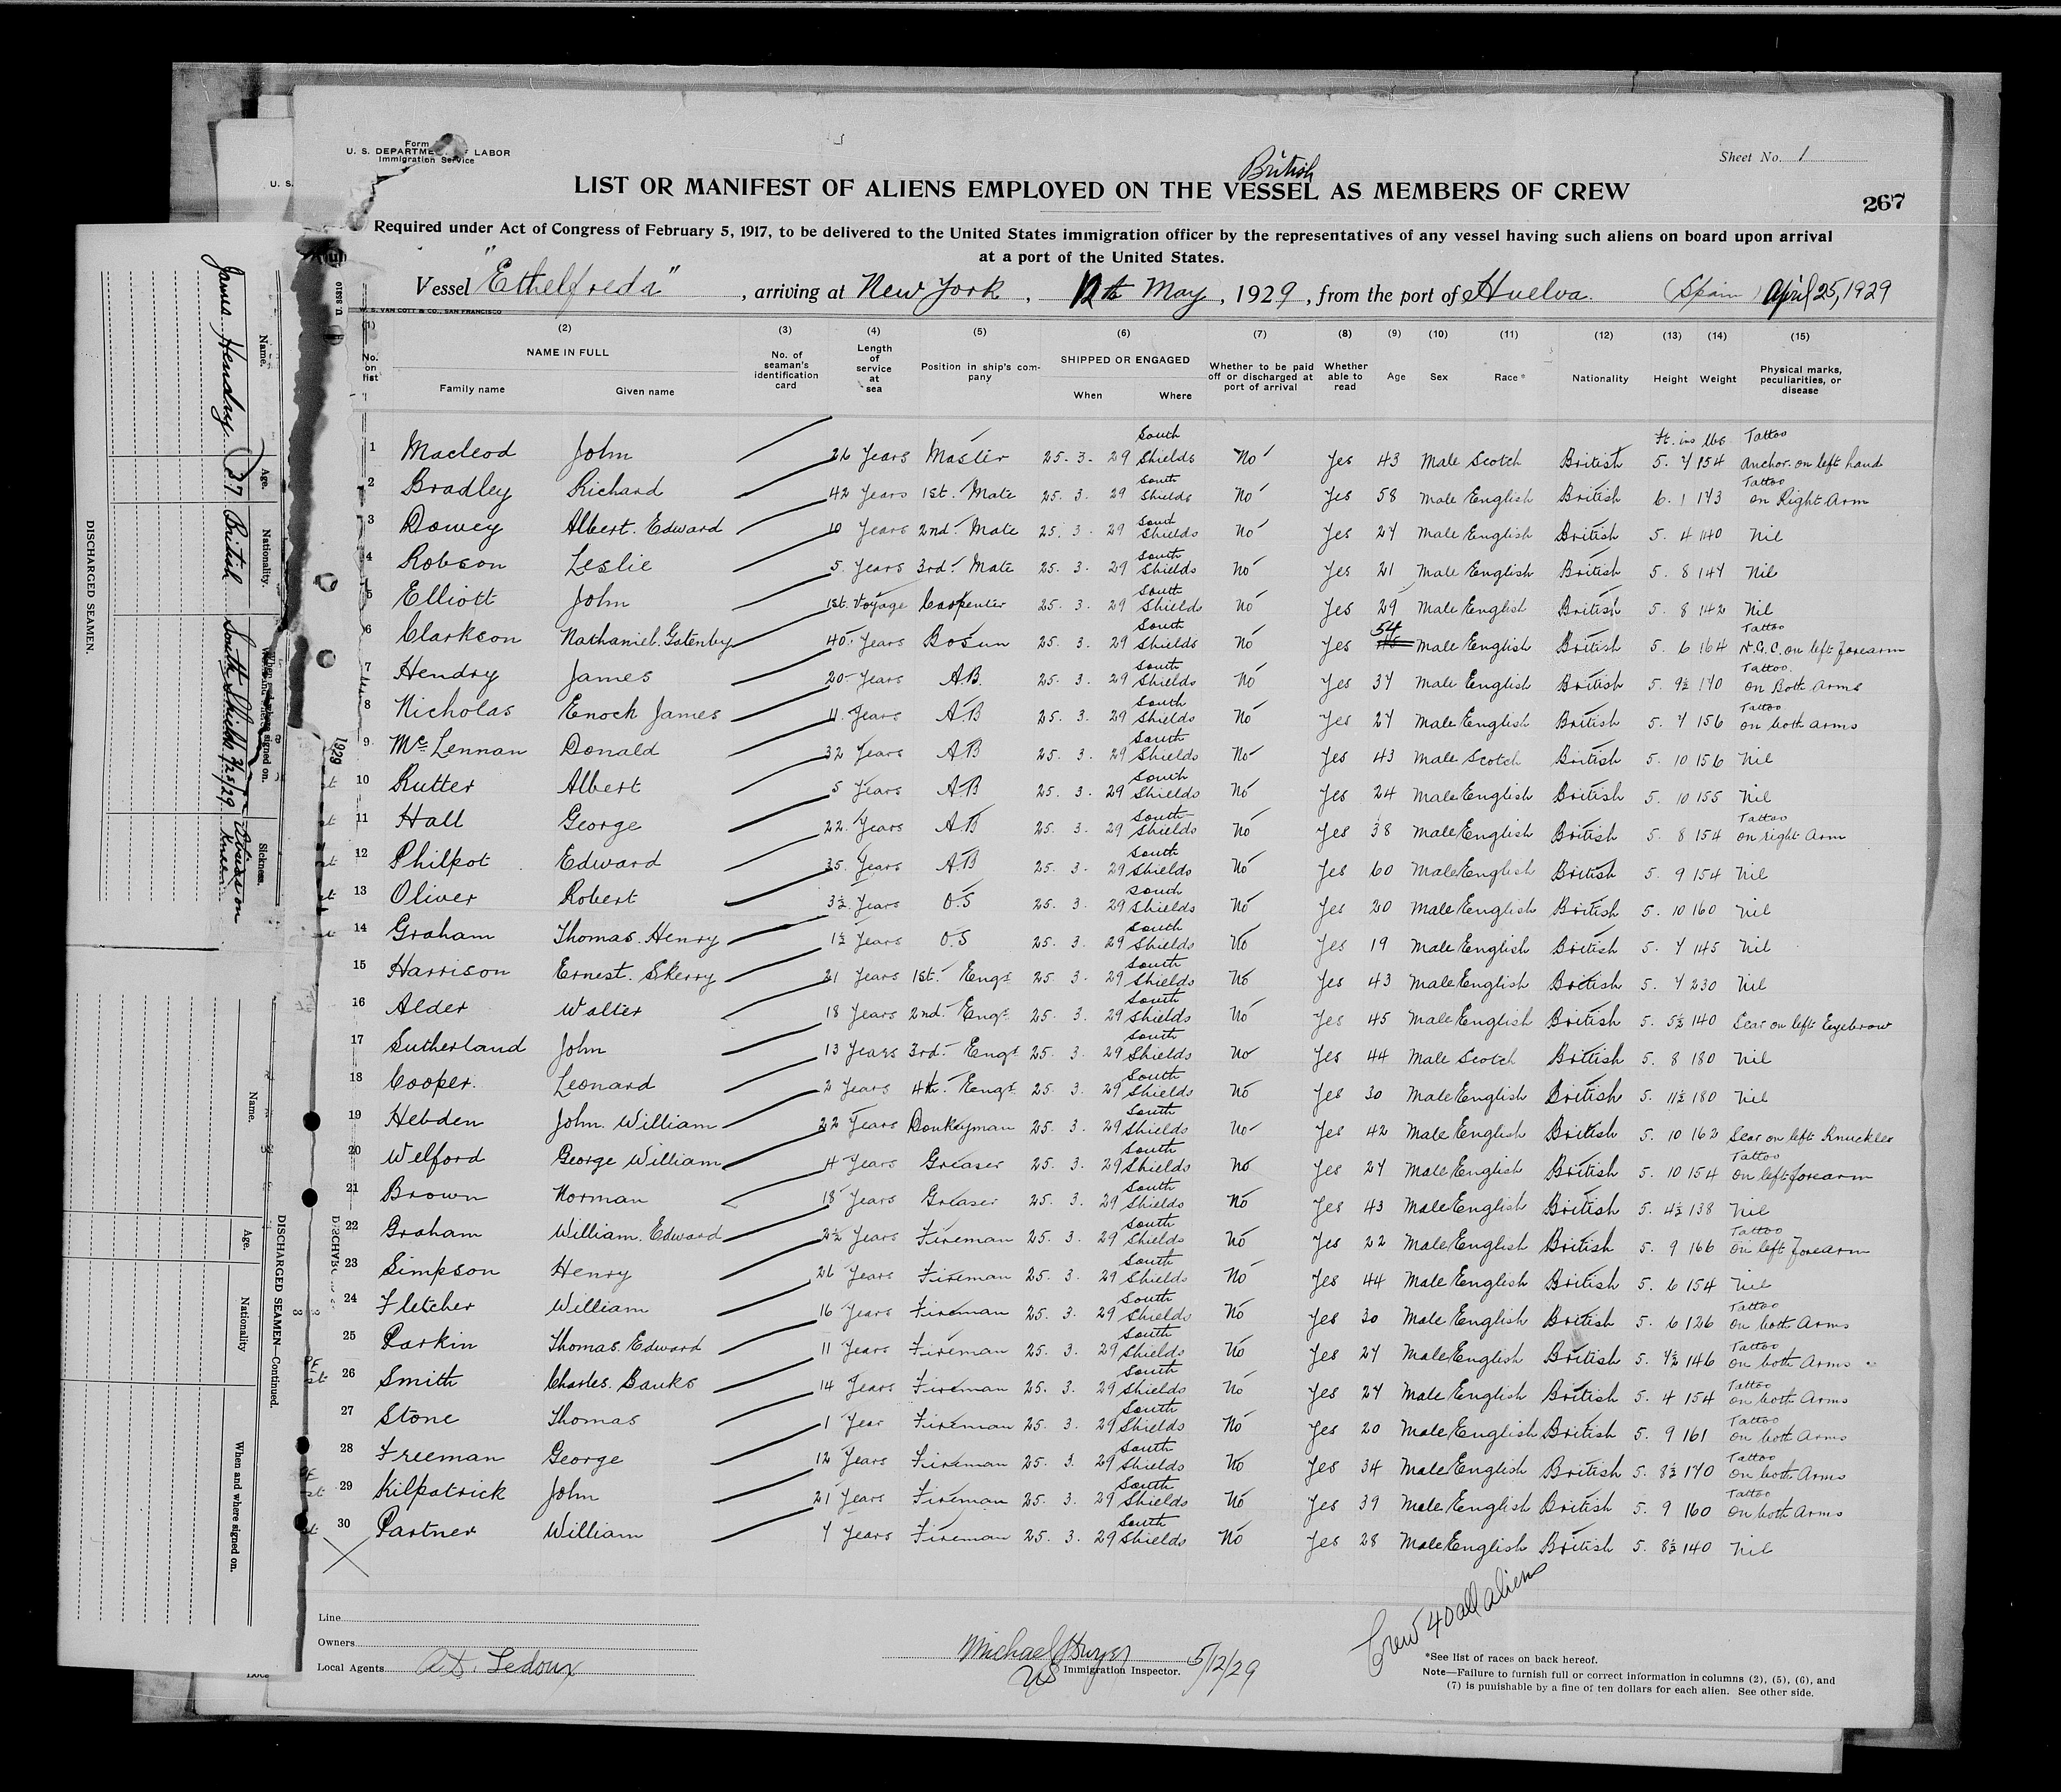 Form
U. S. DEPARTMENT OF LABOR
Immigration Service
Sheet No. 1
British
LIST OR MANIFEST OF ALIENS EMPLOYED ON THE VESSEL AS MEMBERS OF CREW
267
Required under Act of Congress of February 5, 1917, to be delivered to the United States immigration officer by the representatives of any vessel having such aliens on board upon arrival
at a port of the United States.
Vessel "Ethelfreda", arriving at New York, 12th May, 1929, from the port of Huelva. (Spain) April 25, 1929
W. S. VAN COTT & CO., SAN FRANCISCO
(1) (2) (3) (4) (5) (6) (7) (8) (9) (10) (11) (12) (13) (14) (15)
No. on list NAME IN FULL Family name Given name No. of seaman's identification card Length of service at sea Position in ship's company SHIPPED OR ENGAGED When Where Whether to be paid off or discharged at port of arrival Whether able to read Age Sex Race* Nationality Height Weight Physical marks, peculiarities, or disease
ft. ins lbs
1 Macleod John 26 Years Master 25. 3. 29 South Shields No Yes 43 Male Scotch British 5. 7 154 Tattoo Anchor. on left hand
2 Bradley Richard 42 Years 1st. Mate 25. 3. 29 South Shields No Yes 58 Male English British 6. 1 173 Tattoo on Right Arm
3 Dowey Albert. Edward 10 Years 2nd. Mate 25. 3. 29 South Shields No Yes 27 Male English British 5. 4 140 Nil
4 Robson Leslie 5. Years 3rd. Mate 25. 3. 29 South Shields No Yes 21 Male English British 5. 8 147 Nil
5 Elliott John 1st. Voyage Carpenter 25. 3. 29 South Shields No Yes 29 Male English British 5. 8 142 Nil
6 Clarkson Nathaniel. Gatenby 40. Years Bosun 25. 3. 29 South Shields No Yes 54 Male English British 5. 6 164 Tattoo N.G.C. on left forearm
7 Hendry James 20 Years A.B. 25. 3. 29 South Shields No Yes 37 Male English British 5. 9½ 170 Tattoo. on Both Arms
8 Nicholas Enoch James 11. Years A.B 25. 3. 29 South Shields No Yes 27 Male English British 5. 7 156 Tattoo on both arms
9 McLennan Donald 32 Years A.B 25. 3. 29 South Shields No Yes 43 Male Scotch British 5. 10 156 Nil
10 Rutter Albert 5 Years A.B 25. 3. 29 South Shields No Yes 24 Male English British 5. 10 155 Nil
11 Hall George 22. Years A.B 25. 3. 29 South Shields No Yes 38 Male English British 5. 8 154 Tattoo on right Arm
12 Philpot Edward 35. Years A.B 25. 3. 29 South Shields No Yes 60 Male English British 5. 9 154 Nil
13 Oliver Robert 3½ Years O.S 25. 3. 29 South Shields No Yes 20 Male English British 5. 10 160 Nil
14 Graham Thomas. Henry 1½ Years O.S 25. 3. 29 South Shields No Yes 19 Male English British 5. 7 145 Nil
15 Harrison Ernest. Skerry 21 Years 1st. Engr 25. 3. 29 South Shields No Yes 43 Male English British 5. 7 230 Nil
16 Alder Walter 18 Years 2nd. Engr 25. 3. 29 South Shields No Yes 45 Male English British 5. 5½ 140 Scar on left Eyebrow
17 Sutherland John 13 Years 3rd. Engr 25. 3. 29 South Shields No Yes 44 Male Scotch British 5. 8 180 Nil
18 Cooper. Leonard 2 Years 4th. Engr 25. 3. 29 South Shields No Yes 30 Male English British 5. 11½ 180 Nil
19 Hebden John. William 22 Years Donkeyman 25. 3. 29 South Shields No Yes 42 Male English British 5. 10 162 Scar on left Knuckles
20 Welford George William 4 Years Greaser 25. 3. 29 South Shields No Yes 27 Male English British 5. 10 154 Tattoo on left forearm
21 Brown Norman 18 Years Greaser 25. 3. 29 South Shields No Yes 43 Male English British 5. 4½ 138 Nil
22 Graham William. Edward 2½ Years Fireman 25. 3. 29 South Shields No Yes 22 Male English British 5. 9 166 Tattoo on left forearm
23 Simpson Henry 26 Years Fireman 25. 3. 29 South Shields No Yes 44 Male English British 5. 6 154 Nil
24 Fletcher William 16 Years Fireman 25. 3. 29 South Shields No Yes 30 Male English British 5. 6 126 Tattoo on both Arms
25 Parkin Thomas. Edward 11 Years Fireman 25. 3. 29 South Shields No Yes 27 Male English British 5. 7½ 146 Tattoo on both Arms
26 Smith Charles. Banks 14 Years Fireman 25. 3. 29 South Shields No Yes 27 Male English British 5. 4 154 Tattoo on both Arms
27 Stone Thomas 1 Year Fireman 25. 3. 29 South Shields No Yes 20 Male English British 5. 9 161 Tattoo on both Arms
28 Freeman George 12 Years Fireman 25. 3. 29 South Shields No Yes 34 Male English British 5. 8½ 170 Tattoo on both Arms
29 Kilpatrick John 21 Years Fireman 25. 3. 29 South Shields No Yes 39 Male English British 5. 9 160 Tattoo on both Arms
30 Partner William 7 Years Fireman 25. 3. 29 South Shields No Yes 28 Male English British 5. 8½ 140 Nil
Crew 40 all aliens
Line
Owners
Local Agents A.D. Ledoux
Immigration Inspector. 5/12/29
*See list of races on back hereof.
Note—Failure to furnish full or correct information in columns (2), (5), (6), and
(7) is punishable by a fine of ten dollars for each alien. See other side.
DISCHARGED SEAMEN.
Name. Age. Nationality. When and where signed on. Sickness.
James Hendry 37 British South Shields 3/25/29
1929
DISCHARGED SEAMEN—Continued.
Name. Age. Nationality When and where signed on.